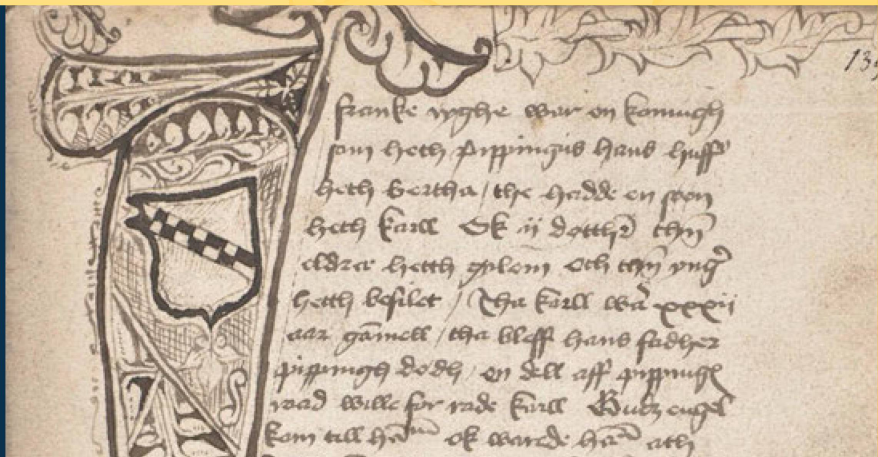 139
franke ryghe war en konungh
som heth pippingis hans husf
heth bertha / the hadde en son
heth karll Ok ij dotth thn
eldræ hetth gylom och thn yng
hetth besilet / Tha karll wa xxxij
aar gamell / tha bleff hans fadher
pippingh dodh / en dell aff pipping
raad wille for rade karll Gudz engel
kom till ha ok warede ha ath